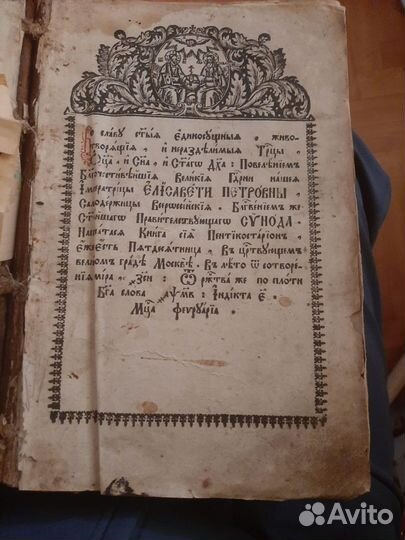 Во славу ст҃ыѧ єдиносꙋщныѧ , живо-
творѧщїѧ , и нераздѣлимыѧ трⷪ҇цы
Ѻц҃а , и сн҃а , и ст҃агѡ дх҃а : повелѣнїемъ
бл҃гочестивѣйшїѧ великїѧ гдⷭ҇рни нашеѧ
императри́цы ЄЛІСАВЕТИ ПЕТРОВНЫ
самодержицы всерѡссїйскїѧ . бл҃гвенїемъ же
ст҃ѣйшагѡ правительствꙋющагѡ СѴНОДА .
напатасѧ книга сїѧ пентикостарїон ,
єже єсть пѧтдесѧтница , въ црⷭ҇твꙋющемъ
великомъ градѣ москвѣ . въ лѣто ѿ сотворе-
нїѧ мїра , ҂зсн҃ : ѿ ржⷭ҇тва же по плоти
бг҃а слова ҂аѱм҃в : індікта є҃
мцⷭ҇а феврꙋарїа .
Avito